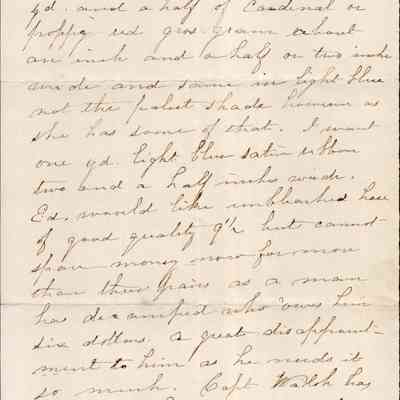 yd. and a half of Cardinal or
poppy red gros-grain about
an inch and a half or two inches
wide and same in light blue
not the palest shade however as
she has some of that. I want
one yd. light blue satin ribbon
two and a half inches wide.
Ed. would like unbleached hose
of good quality 9½ but cannot
spare money now for more
than three pairs as a man
has decamped who owes him
six dollars. a great disappoint-
ment to him as he needs it
so much. Capt Walsh has